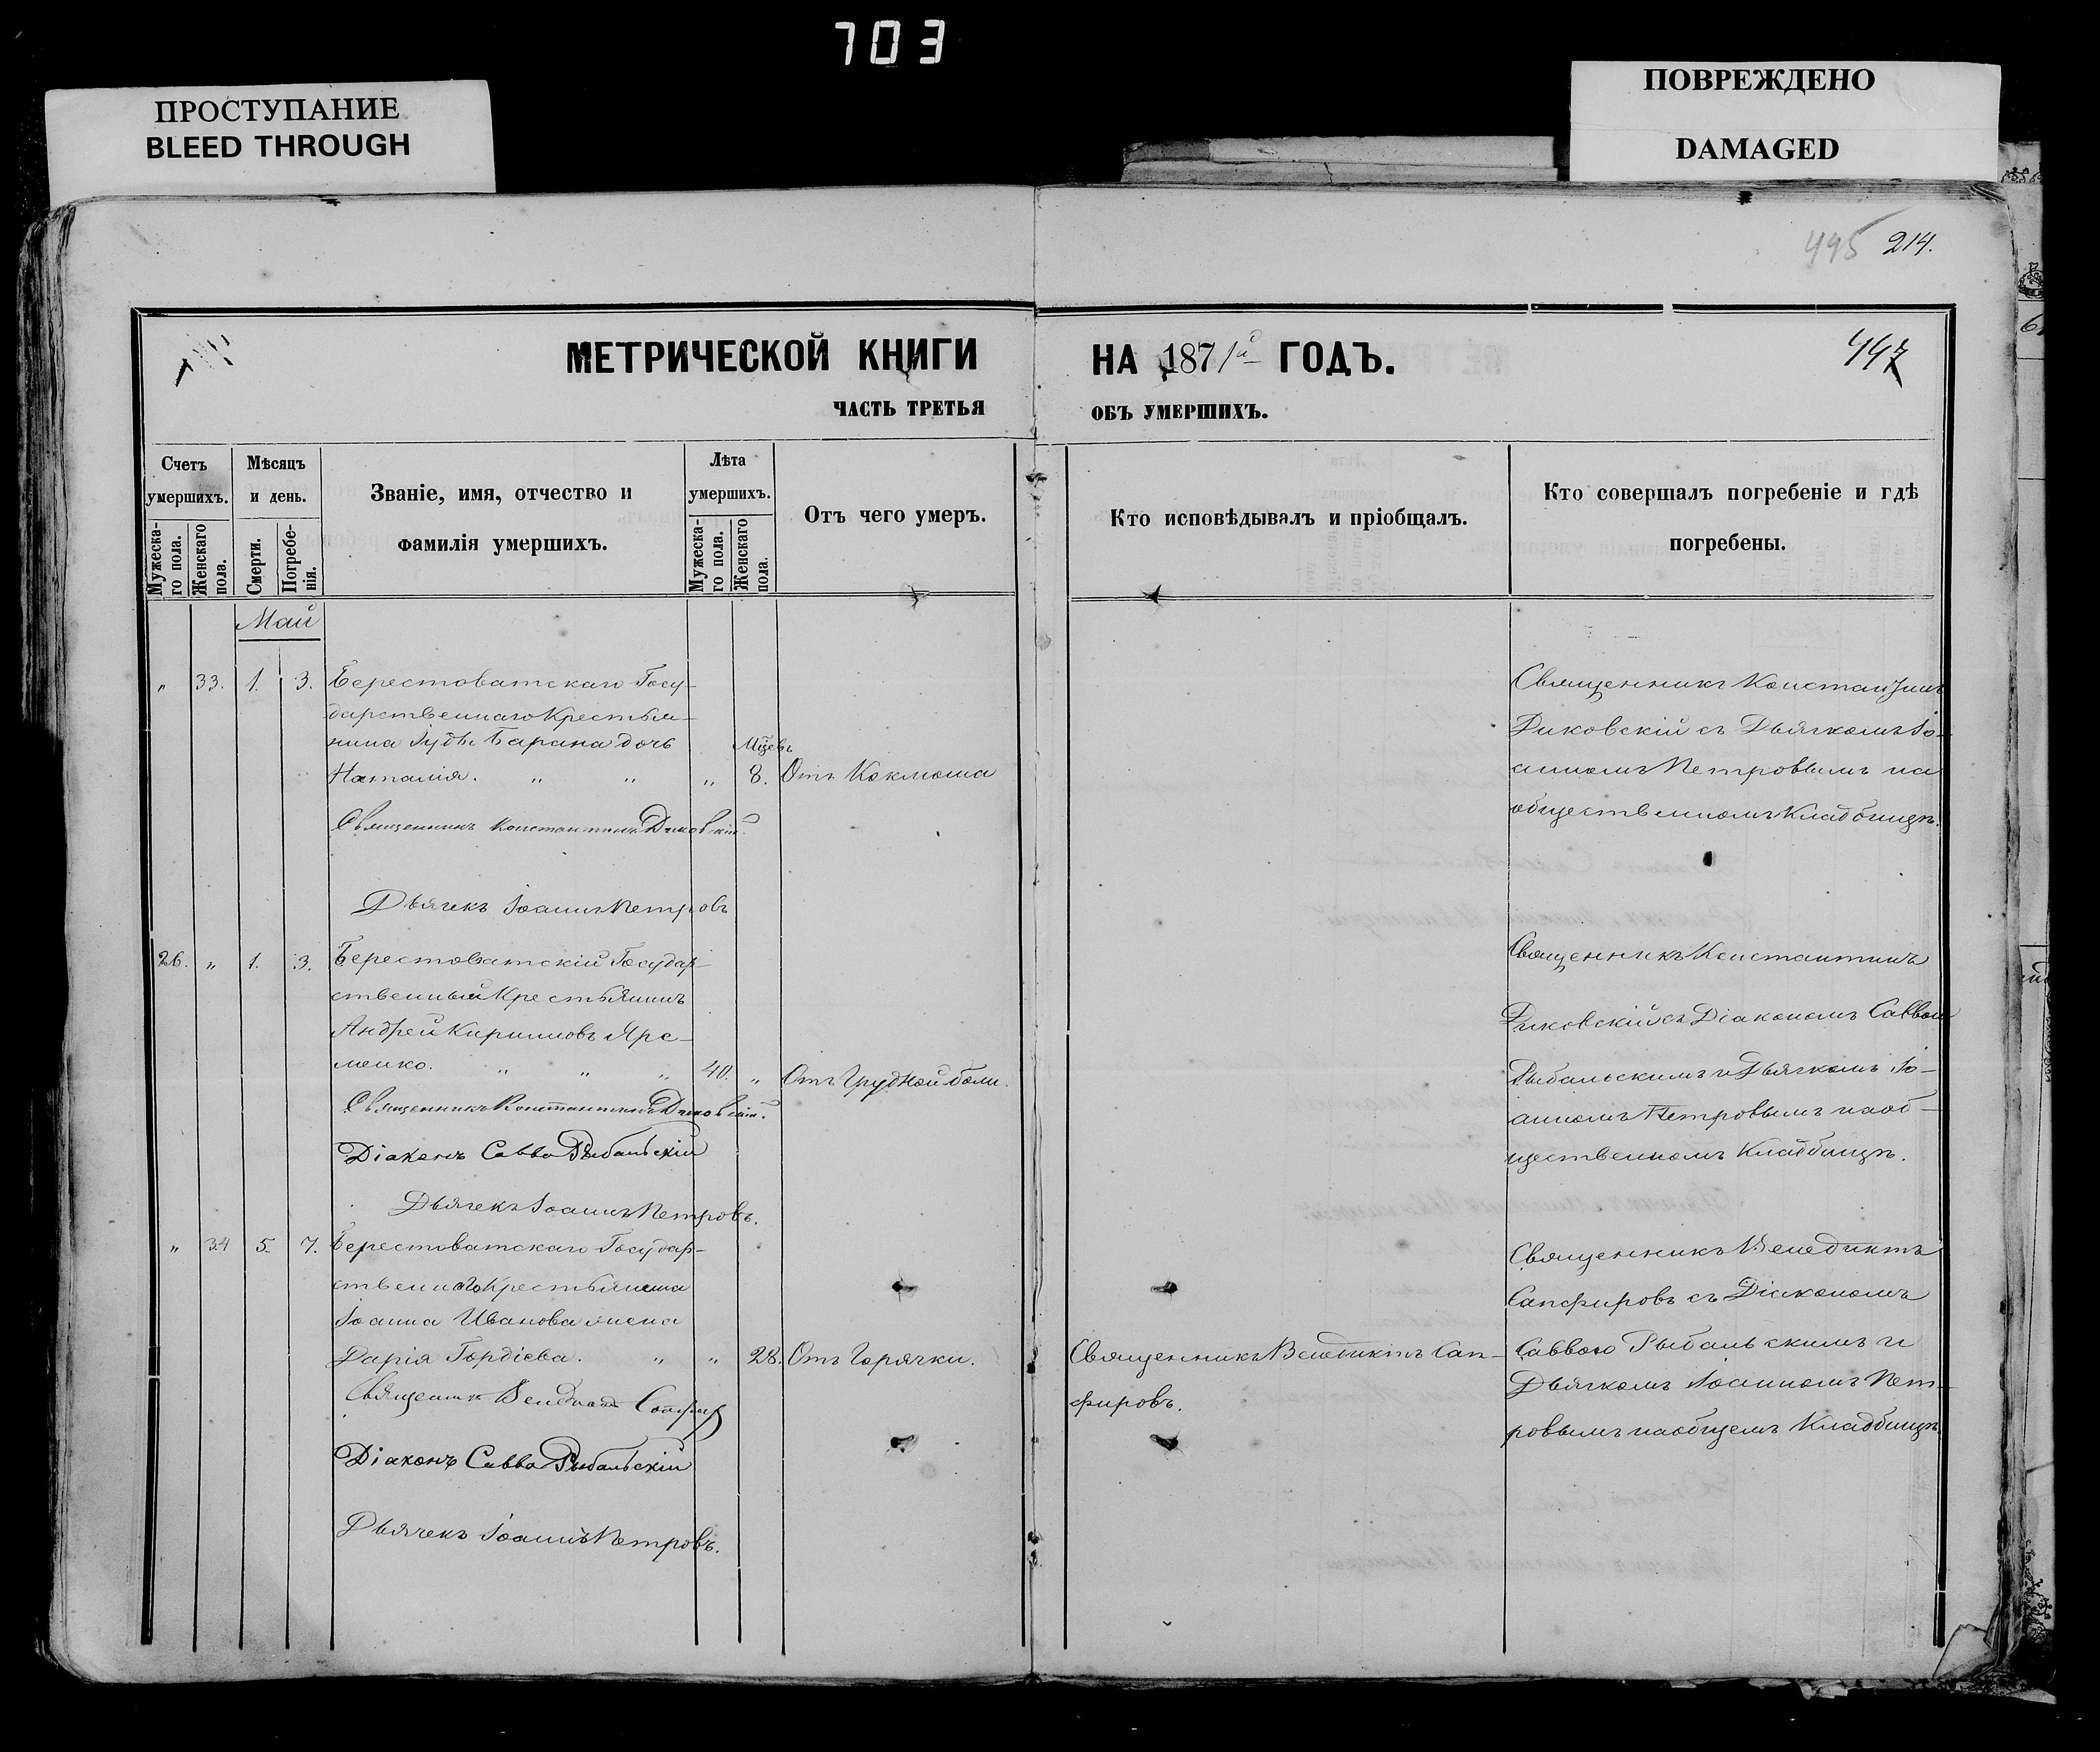 703
ПРОСТУПАНИЕ
BLEED THROUGH
ПОВРЕЖДЕНО
DAMAGED
495 214.
МЕТРИЧЕСКОЙ КНИГИ НА 1871й ГОДЪ.
447
ЧАСТЬ ТРЕТЬЯ ОБЪ УМЕРШИХЪ.
Счетъ умершихъ.
Мужеска-го пола.
Женскаго пола.
Мѣсяцъ и день.
Смерти.
Погребе-нія.
Званіе, имя, отчество и
фамилія умершихъ.
Лѣта умершихъ.
Мужеска-го пола.
Женскаго пола.
Отъ чего умеръ.
Кто исповѣдывалъ и пріобщалъ.
Кто совершалъ погребеніе и гдѣ
погребены.
Май
" 33. 1. 3. Берестоватскаго Госу-
дарственнаго Крестья-
нина Іуды Барана дочь
Мцевъ
Наталія. " " " 8. Отъ Коклюша
Священникъ Константинъ Диковскій.
Дьячекъ Іоаннъ Петровъ
Священникъ Константинъ
Диковскій съ Дьячкомъ Іо-
анномъ Петровымъ на
общественномъ Кладбищѣ.
26. " 1. 3. Берестоватскій Государ-
ственный Крестьянинъ
Андрей Кирилловъ Яре-
менко. " " " 40. " Отъ Грудной боли.
Священникъ Константинъ Диковскій.
Діаконъ Савва Рыбальскій
Дьячекъ Іоаннъ Петровъ.
Священникъ Константинъ
Диковскій съ Діакономъ Саввою
Рыбальскимъ и Дьячкомъ Іо-
анномъ Петровымъ на об-
щественномъ Кладбищѣ.
" 34 5. 7. Берестоватскаго Государ-
ственнаго Крестьянина
Іоанна Иванова жена
Дарія Гордіева. " " 28. Отъ Горячки.
Священникъ Венедиктъ Сапфировъ
Діаконъ Савва Рыбальскій
Дьячекъ Іоаннъ Петровъ.
Священникъ Венедиктъ Сап-
фировъ.
Священникъ Венедиктъ
Сапфировъ съ Діакономъ
Саввою Рыбальскимъ и
Дьячкомъ Іоанномъ Пет-
ровымъ на общемъ Кладбищѣ.